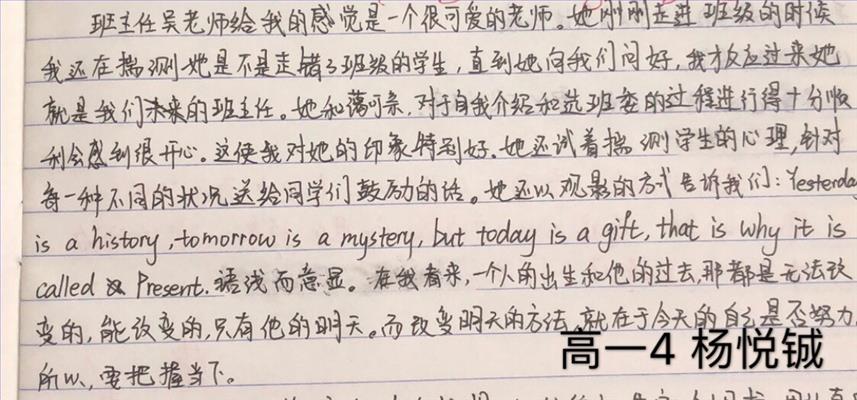 班主任吴老师给我的感觉是一个很可爱的老师。她刚刚走进班级的时候
我还在揣测她是不是走错了班级的学生，直到她向我们问好，我才反应过来她
就是我们未来的班主任。她和蔼可亲，对于自我介绍和选班委的过程进行得十分顺
利会感到很开心。这使我对她的印象特别好。她还试着揣测学生的心理，针对
每一种不同的状况送给同学们鼓励的话。她还以观影的方式告诉我们：Yesterday
is a history, tomorrow is a mystery, but today is a gift, that is why it is
called Present. 语浅而意显。在我看来，一个人的出生和他的过去，那都是无法改
变的，能改变的，只有他的明天。而改变明天的方法，就在于今天的自己是否努力，
所以，要把握当下。
高一4 杨悦铖